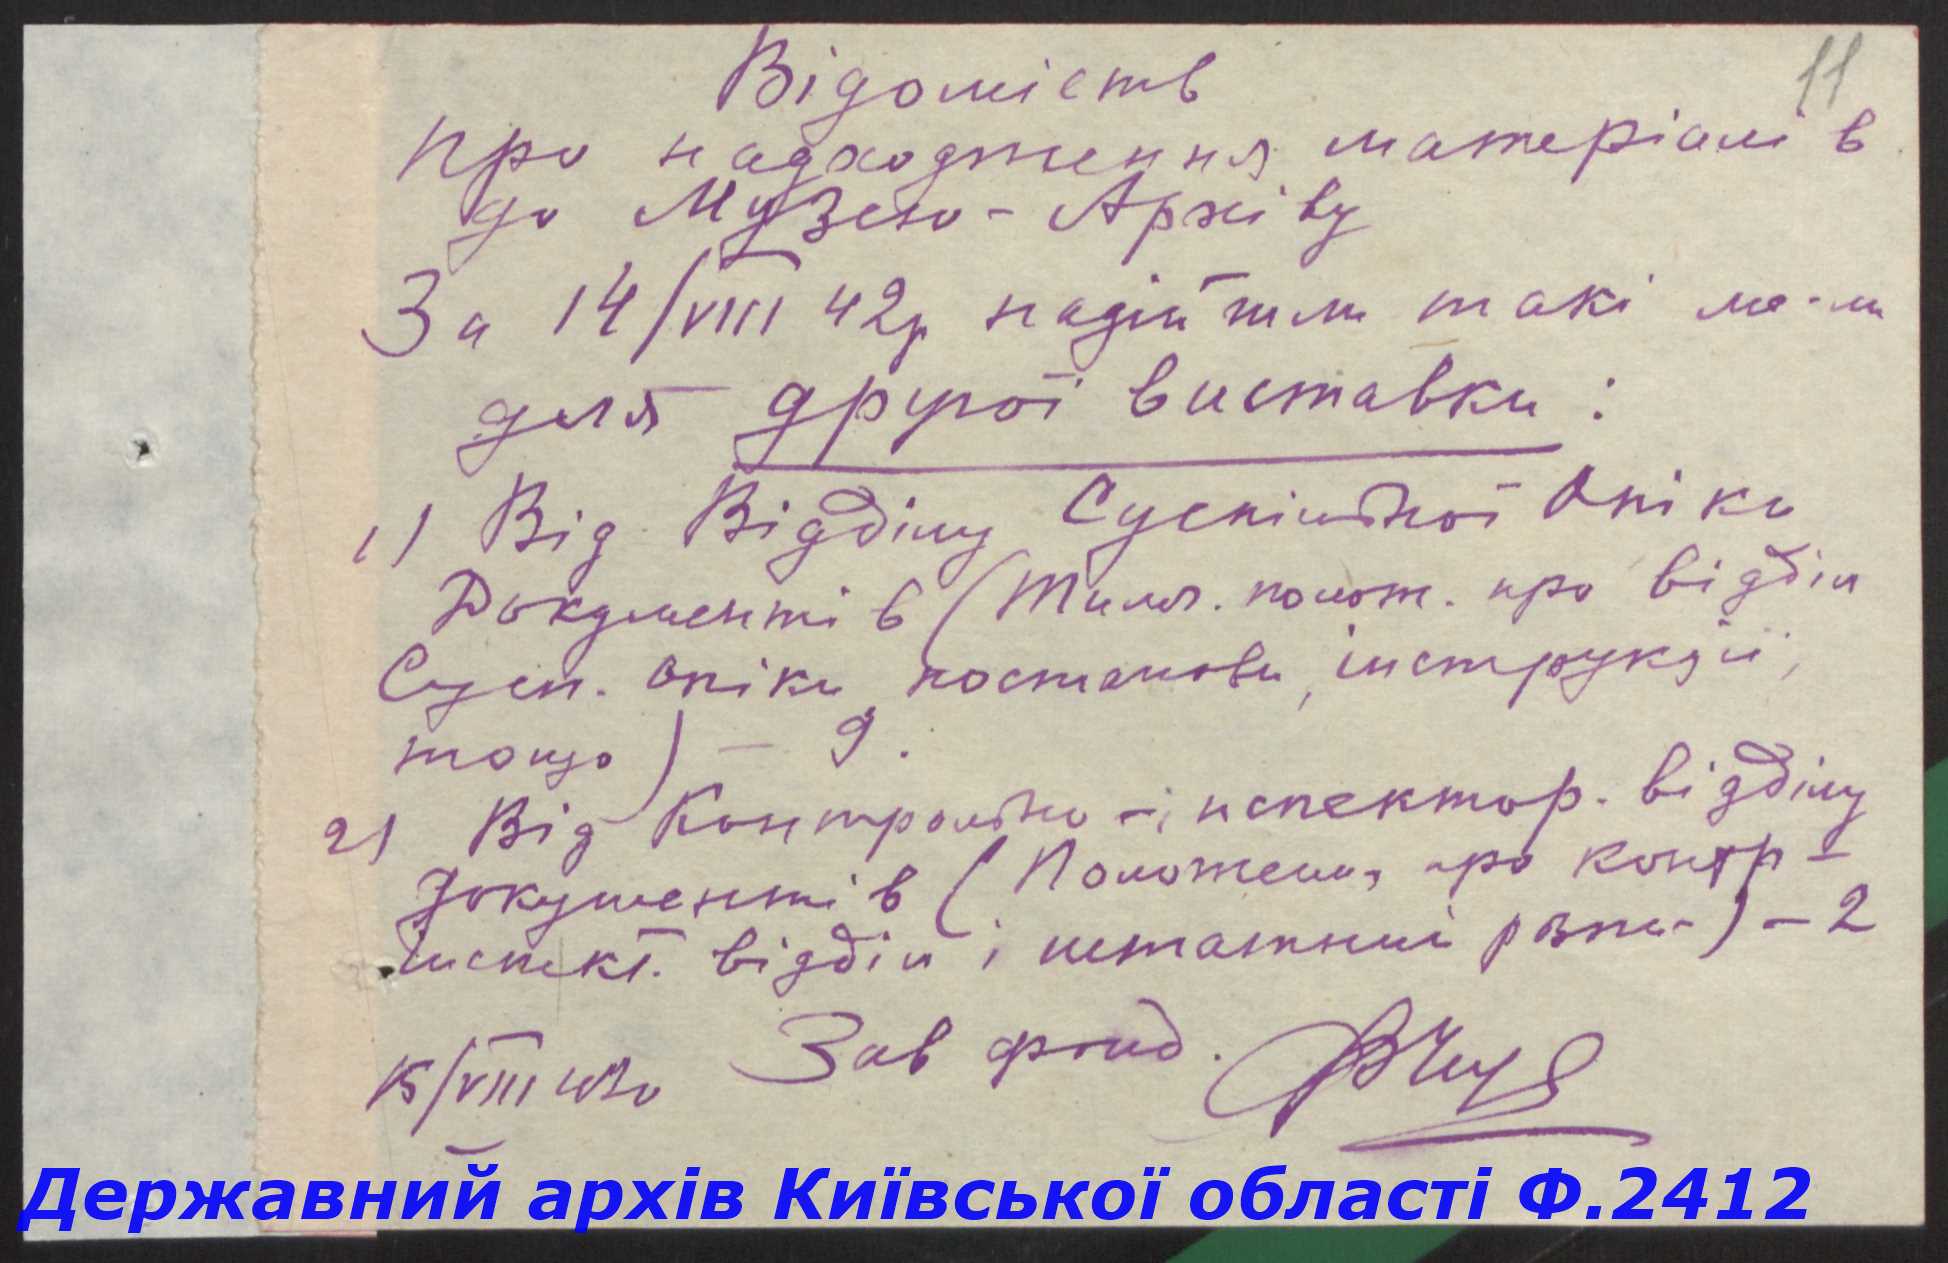 11
Відомість
про надходження матеріалів
до Музею-Архіву
За 14/VIII 42р надійшли такі ма-ли
для другої виставки:
1) Від Відділу Суспільної Опіки
Документів (Тимч. полож. про відділ
Сусп. опіки, постанови, інструкції,
тощо) – 9.
2) Від Контрольно-інспектор. відділу
документів (Положення про контр-
інспект. відділ і штатний розпис) – 2
15/VIII 42р Зав фонд.
Державний архів Київської області Ф.2412